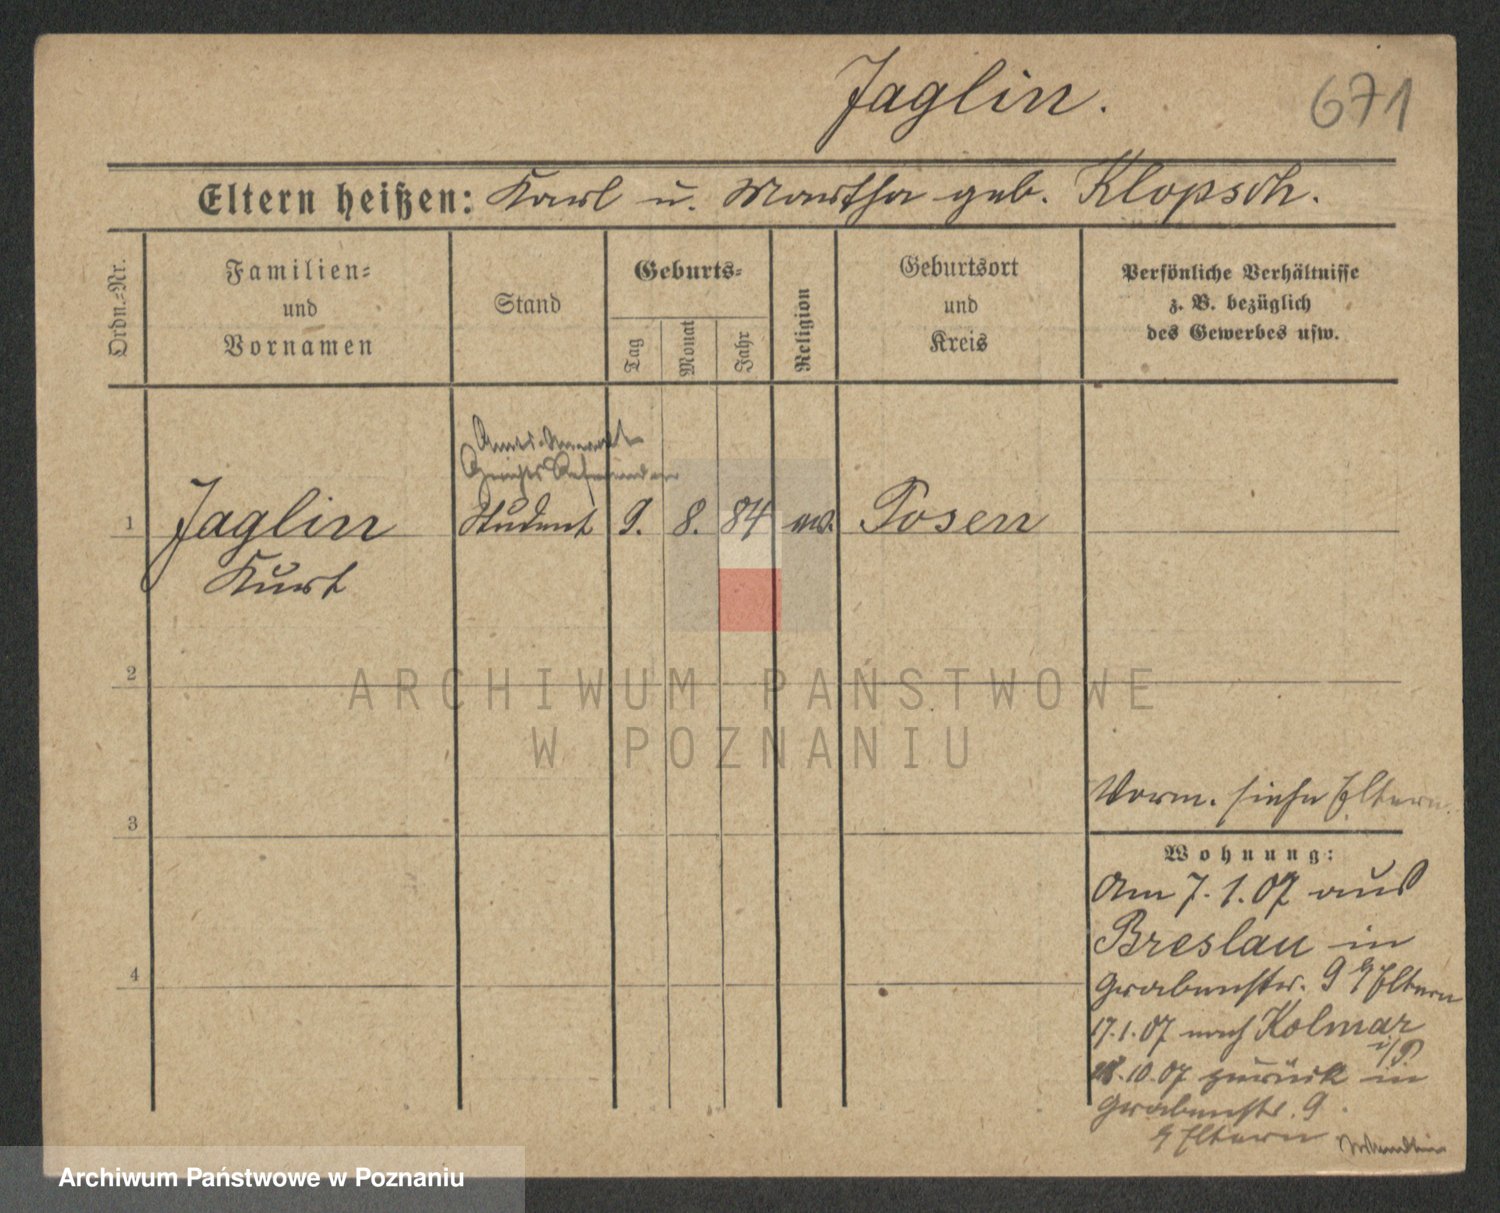 Jaglin.
671
Eltern heißen: Karl u. Martha geb. Klopsch.
Ordn.-Nr.
Familien-
und
Vornamen
Stand
Geburts-
Tag
Monat
Jahr
Religion
Geburtsort
und
Kreis
Persönliche Verhältnisse
z. B. bezüglich
des Gewerbes usw.
Amts-Anwalt
Gerichts Referendar
1 Jaglin Student 9. 8. 84 ev. Posen
Kurt
2
ARCHIWUM PAŃSTWOWE
W POZNANIU
Vorm. siehe Eltern.
3
Wohnung:
Am 7.1.07 aus
Breslau in
Grabenstr. 9 Eltern
4
17.1.07 nach Kolmar
i/P.
10.07 zurück in
Grabenstr. 9.
Eltern
Archiwum Państwowe w Poznaniu